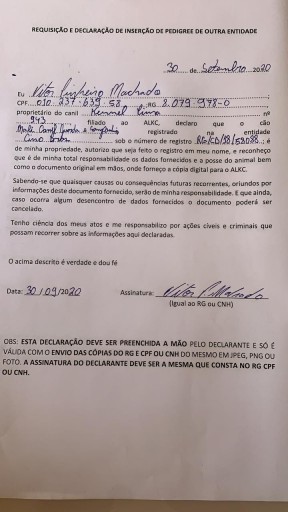 REQUISIÇÃO E DECLARAÇÃO DE INSERÇÃO DE PEDIGREE DE OUTRA ENTIDADE
30 de Setembro 2020
Eu Vitor Pinheiro Machado
CPF 010 237 639 58 RG 8.079 948-0
proprietário do canil Kennel Lima nº
943 filiado ao ALKC, declaro que o cão
registrado na entidade
sob o número de registro é
de minha propriedade, autorizo que seja feito o registro em meu nome, e reconheço
que é de minha total responsabilidade os dados fornecidos e a posse do animal bem
como o documento original em mãos, onde forneço a cópia digital para o ALKC.
Sabendo-se que quaisquer causas ou consequências futuras recorrentes, oriundos por
informações deste documento fornecido, serão de minha responsabilidade. E que ainda,
caso ocorra algum desencontro de dados fornecidos o documento poderá ser
cancelado.
Tenho ciência dos meus atos e me responsabilizo por ações cíveis e criminais que
possam recorrer sobre as informações aqui declaradas.
O acima descrito é verdade e dou fé
Data: 30/09/2020 Assinatura: Vitor P. Machado
(Igual ao RG ou CNH)
OBS: ESTA DECLARAÇÃO DEVE SER PREENCHIDA A MÃO PELO DECLARANTE E SÓ É
VÁLIDA COM O ENVIO DAS CÓPIAS DO RG E CPF OU CNH DO MESMO EM JPEG, PNG OU
FOTO. A ASSINATURA DO DECLARANTE DEVE SER A MESMA QUE CONSTA NO RG CPF
OU CNH.